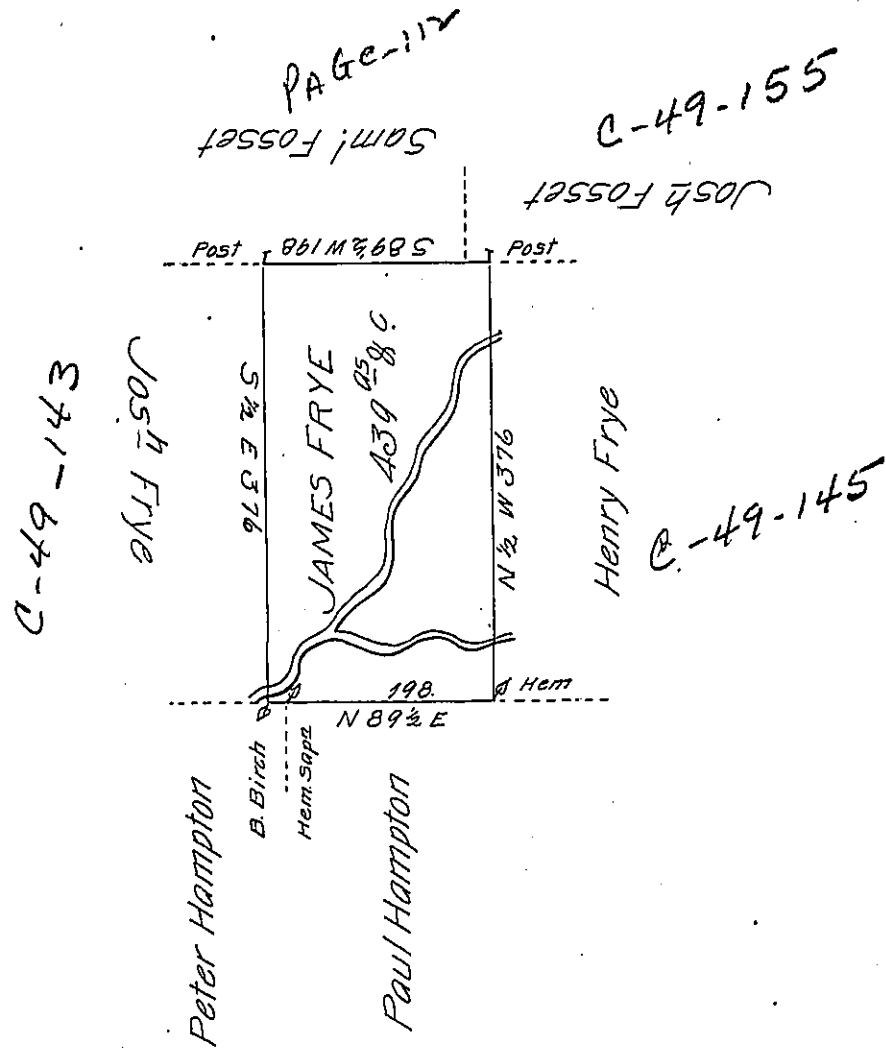 PAGE-112
Sam! Fosset
C-49-155
Josh Fosset
Post
S 89½ W 198
Post
C-49-143
Josh Frye
S ½ E 376
JAMES FRYE
439 as 8 C.
N ½ W 376
Henry Frye
C-49-145
198.
Hem
N 89½ E
B. Birch
Hem. Sapn
Peter Hampton
Paul Hampton